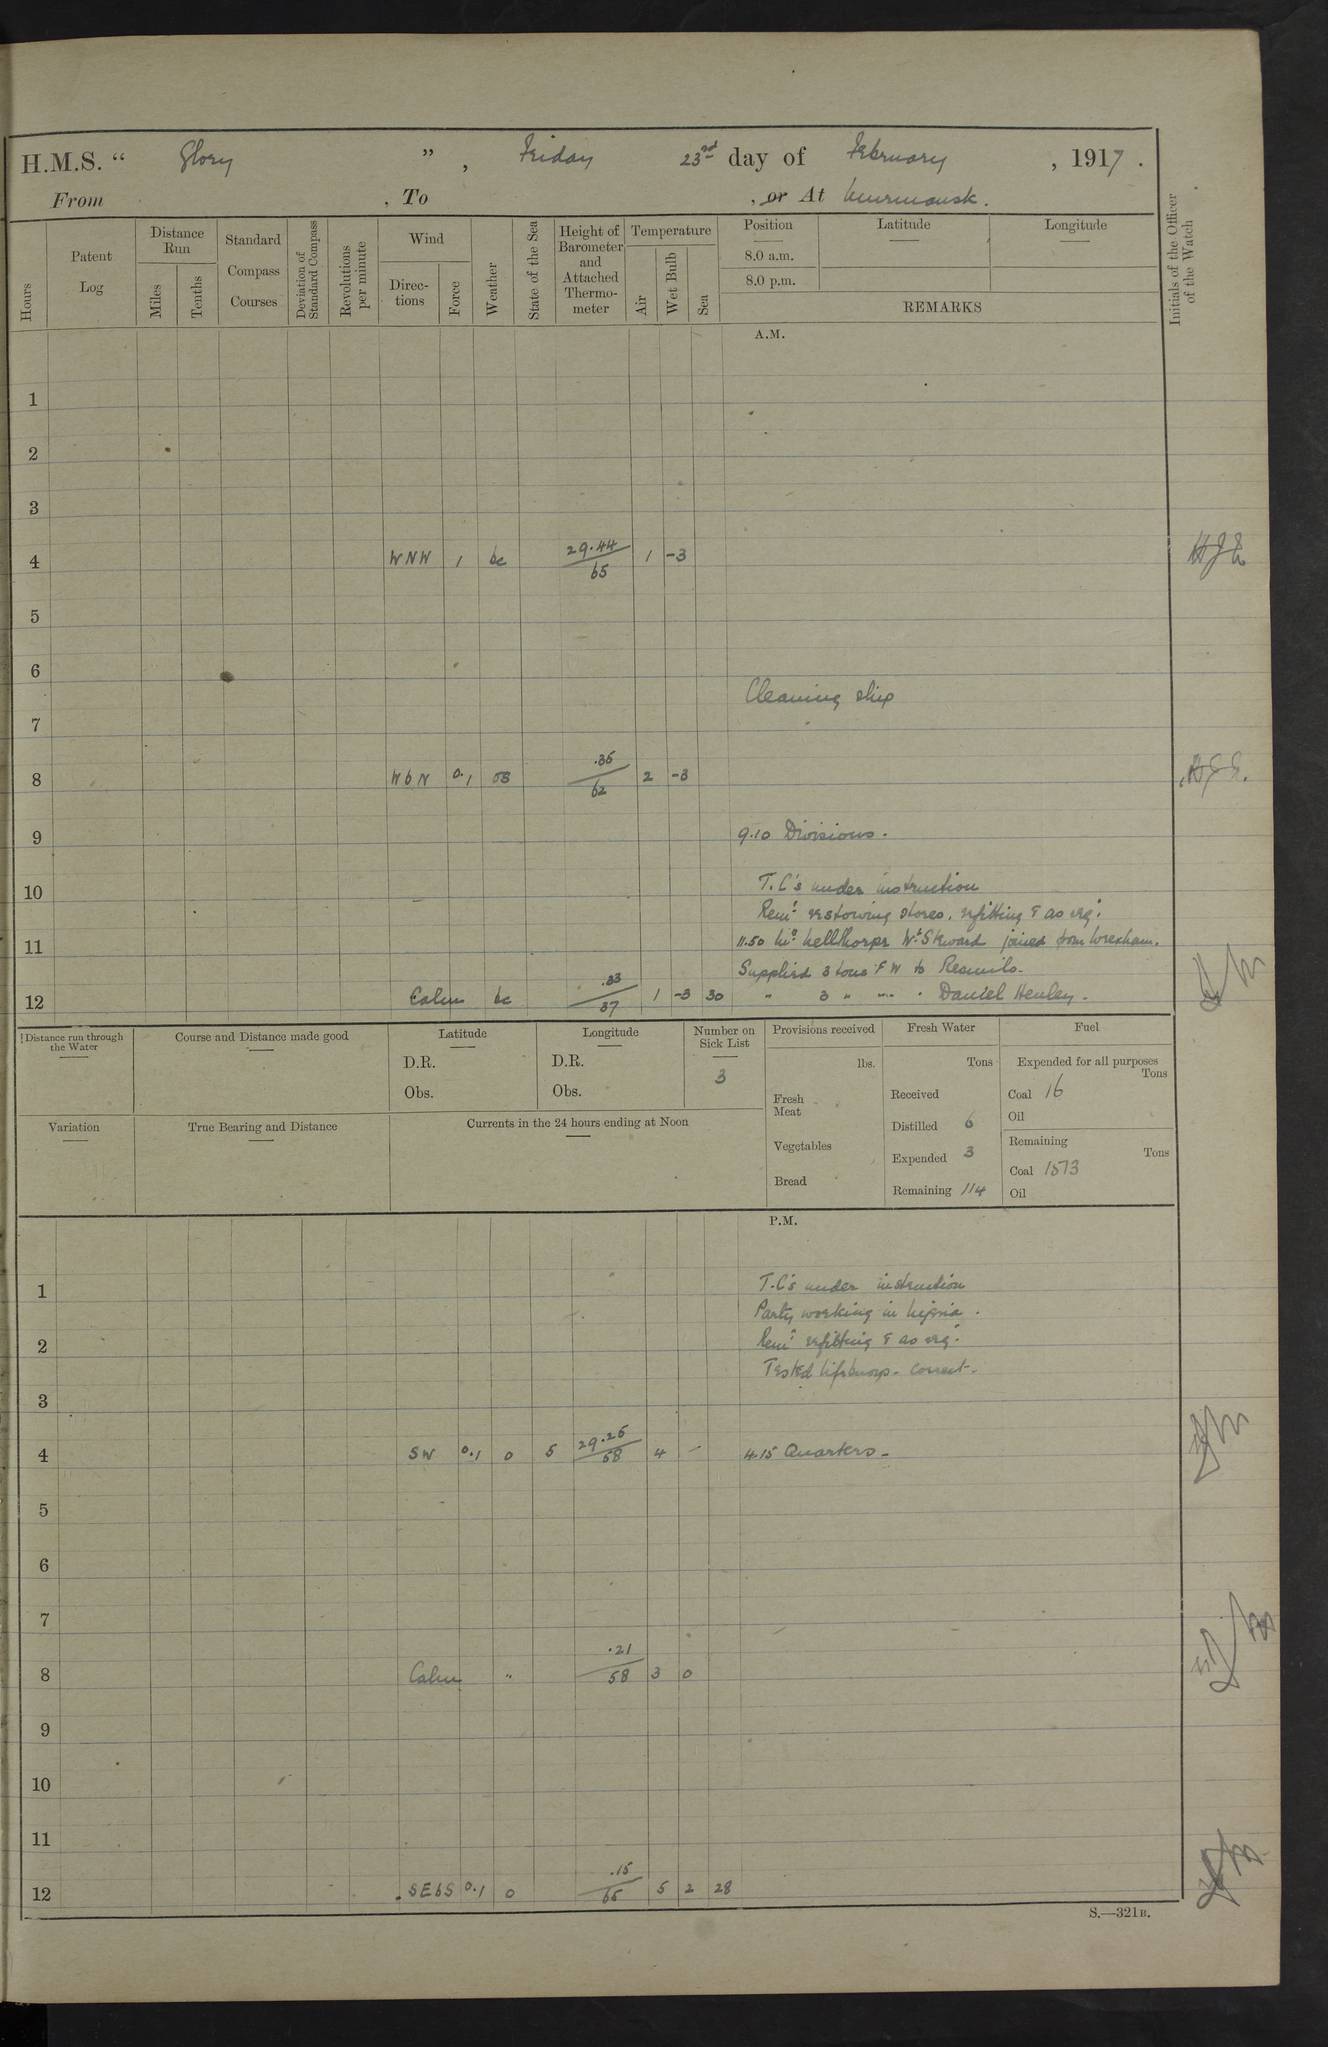 H.M.S. “ Glory ” , Friday 23rd day of February , 1917 .
From , To , or At Murmansk.
Hours
Patent Log
Distance Run
Miles
Tenths
Standard Compass Courses
Deviation of Standard Compass
Revolutions per minute
Wind
Directions
Force
Weather
State of the Sea
Height of Barometer and Attached Thermometer
Temperature
Air
Wet Bulb
Sea
Position
8.0 a.m.
8.0 p.m.
Latitude
Longitude
REMARKS
Initials of the Officer of the Watch
A.M.
1
2
3
4 WNW 1 bc 29.44/65 1 -3
5
6
Cleaning ship
7
8 WbN 0.1 os .35/62 2 -3
9 9.10 Divisions.
T.C's under instruction
10
Remr restowing stores, refitting & as reqd.
11 11.50 joined from Wrexham.
Supplied 3 tons F W to
12 Calm bc .33/37 1 -3 30 " 3 " " " Daniel Henley.
Distance run through the Water
Course and Distance made good
Latitude
D.R.
Obs.
Longitude
D.R.
Obs.
Number on Sick List
3
Provisions received
lbs.
Fresh Meat
Vegetables
Bread
Fresh Water
Tons
Received
Distilled 6
Expended 3
Remaining 114
Fuel
Expended for all purposes
Tons
Coal 16
Oil
Remaining
Tons
Coal 1573
Oil
Variation
True Bearing and Distance
Currents in the 24 hours ending at Noon
P.M.
1 T.C's under instruction
Party working in
2 Remr refitting & as reqd.
Tested lifebuoys - correct.
3
4 SW 0.1 o 5 29.25/58 4 - 4.15 Quarters.
5
6
7
8 Calm " .21/58 3 0
9
10
11
12 SEbS 0.1 o .15/65 5 2 28
S.—321B.